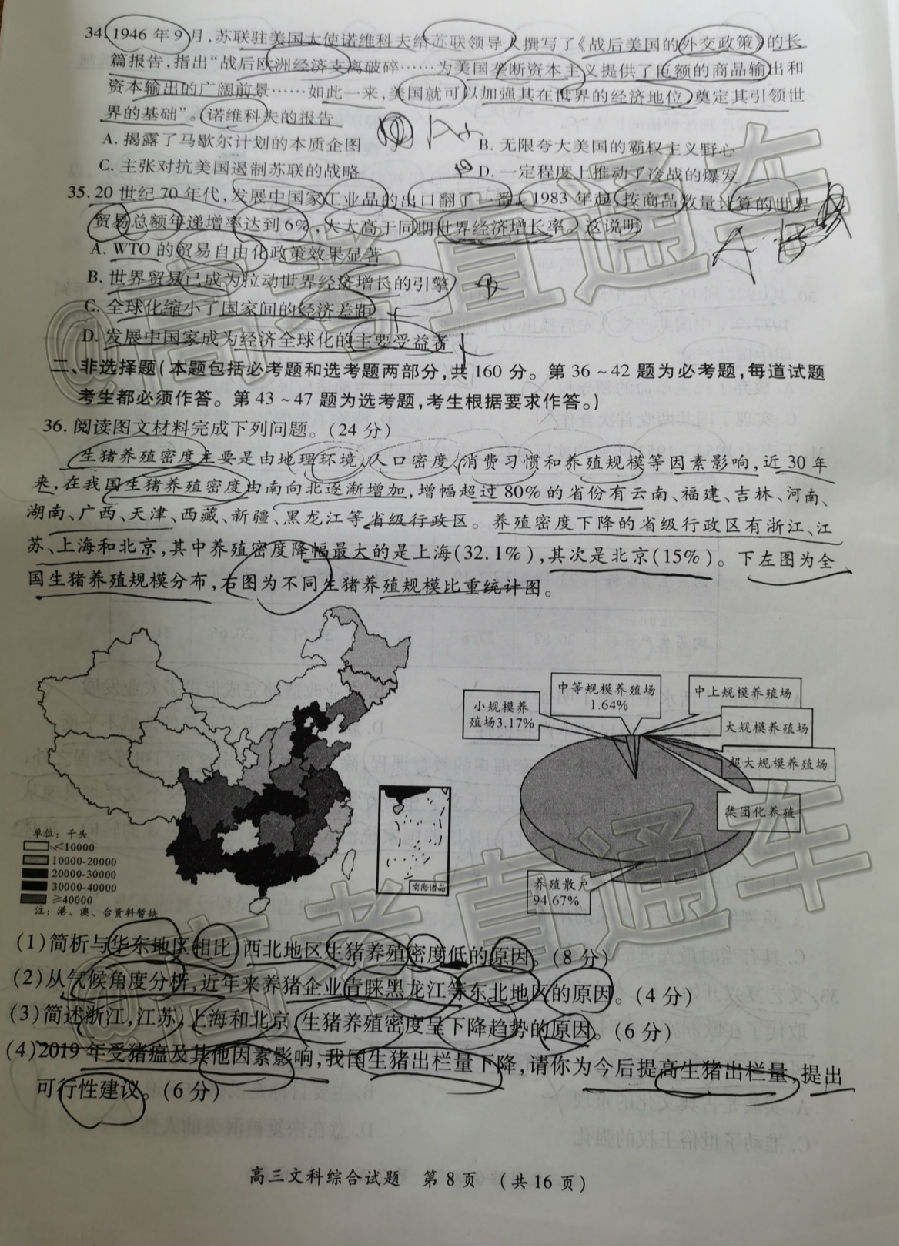 34. 1946 年 9 月,苏联驻美国大使诺维科夫给苏联领导人撰写了《战后美国的外交政策》的长
篇报告,指出“战后欧洲经济支离破碎……为美国垄断资本主义提供了巨额的商品输出和
资本输出的广阔前景……如此一来,美国就可以加强其在世界的经济地位,奠定其引领世
界的基础”。诺维科夫的报告
A. 揭露了马歇尔计划的本质企图
B. 无限夸大美国的霸权主义野心
C. 主张对抗美国遏制苏联的战略
D. 一定程度上推动了冷战的爆发
35. 20 世纪 70 年代,发展中国家工业品的出口翻了一番,1983 年起,按商品数量计算的世界
贸易总额年递增率达到 6%,大大高于同期世界经济增长率。这说明
A. WTO 的贸易自由化政策效果显著
B. 世界贸易已成为拉动世界经济增长的引擎
C. 全球化缩小了国家间的经济差距
D. 发展中国家成为经济全球化的主要受益者
二、非选择题(本题包括必考题和选考题两部分,共 160 分。第 36～42 题为必考题,每道试题
考生都必须作答。第 43～47 题为选考题,考生根据要求作答。)
36. 阅读图文材料完成下列问题。(24 分)
生猪养殖密度主要是由地理环境、人口密度、消费习惯和养殖规模等因素影响,近 30 年
来,在我国生猪养殖密度由南向北逐渐增加,增幅超过 80%的省份有云南、福建、吉林、河南、
湖南、广西、天津、西藏、新疆、黑龙江等省级行政区。养殖密度下降的省级行政区有浙江、江
苏、上海和北京,其中养殖密度降幅最大的是上海(32.1%),其次是北京(15%)。下左图为全
国生猪养殖规模分布,右图为不同生猪养殖规模比重统计图。
单位:千头
<10000
10000-20000
20000-30000
30000-40000
≥40000
注:港、澳、台资料暂缺
南海诸岛
小规模养
殖场3.17%
中等规模养殖场
1.64%
中上规模养殖场
大规模养殖场
超大规模养殖场
集团化养殖
养殖散户
94.67%
(1)简析与华东地区相比,西北地区生猪养殖密度低的原因。(8 分)
(2)从气候角度分析,近年来养猪企业青睐黑龙江等东北地区的原因。(4 分)
(3)简述浙江,江苏,上海和北京,生猪养殖密度呈下降趋势的原因。(6 分)
(4)2019 年受猪瘟及其他因素影响,我国生猪出栏量下降,请你为今后提高生猪出栏量,提出
可行性建议。(6 分)
高三文科综合试题 第 8 页 (共 16 页)
@高考直通车
@高考直通车